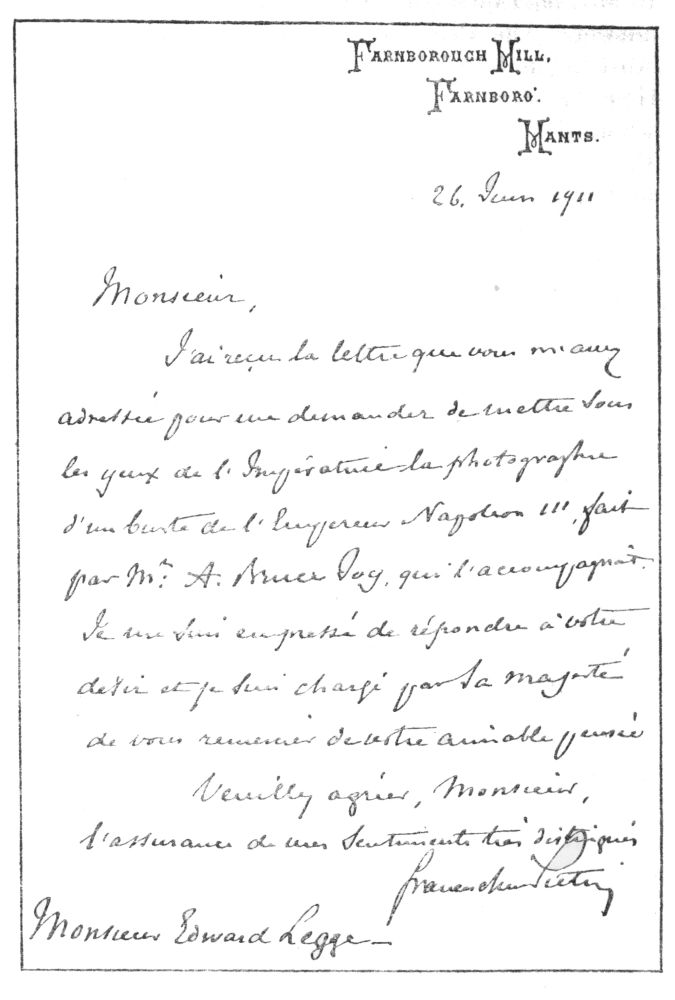 FARNBOROUGH HILL,
FARNBORO'.
HANTS.
26. Juin 1911
Monsieur,
J'ai reçu la lettre que vous m'avez
adressée pour me demander de mettre sous
les yeux de l'Impératrice la photographie
d'un buste de l'Empereur Napoléon III, fait
par Mr. A. Bruce Joy, qui l'accompagnait.
Je me suis empressé de répondre à votre
désir et je suis chargé par Sa Majesté
de vous remercier de votre aimable pensée
Veuillez agréer, Monsieur,
l'assurance de mes sentiments très distingués
Franceschini Pietri
Monsieur Edward Legge